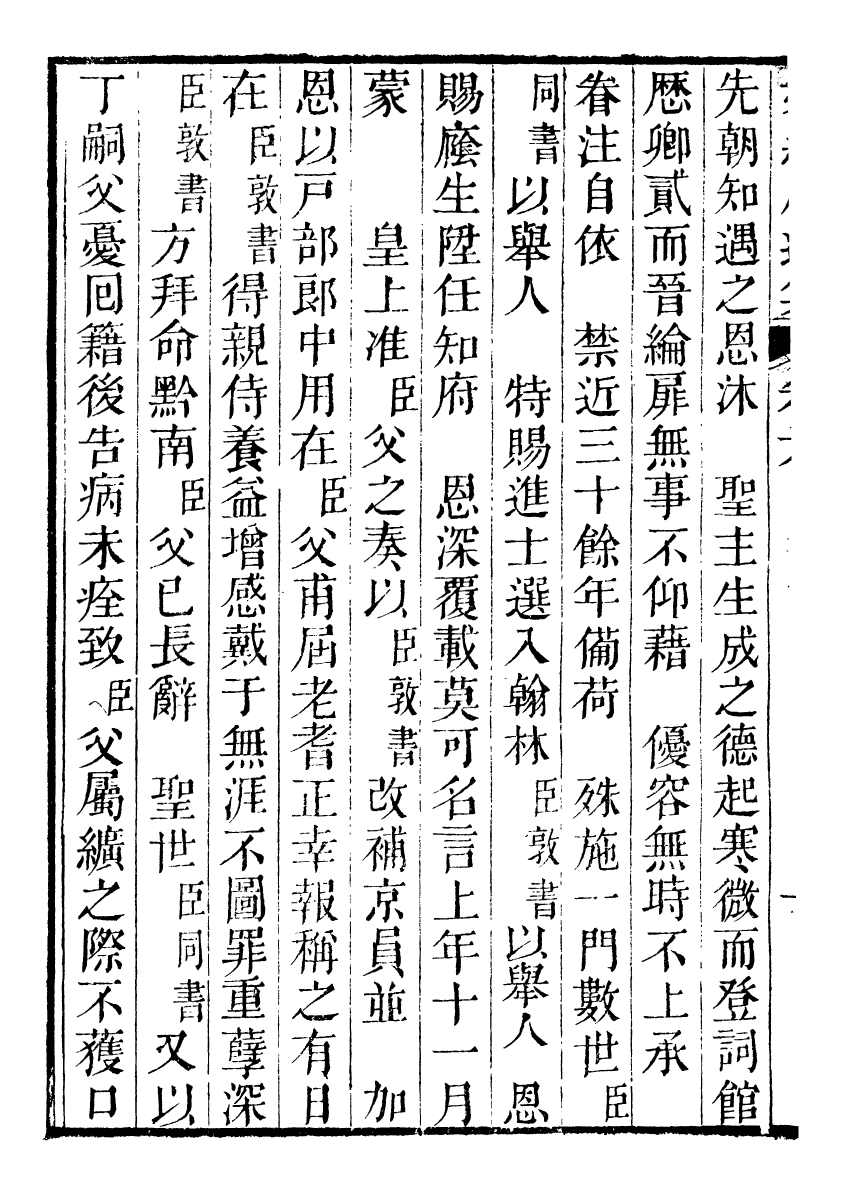 先朝知遇之恩沐　聖主生成之德起寒微而登詞館
歷卿貳而晉綸扉無事不仰藉　優容無時不上承
眷注自依　禁近三十餘年備荷　殊施一門數世臣
同書以舉人　特賜進士選入翰林臣敦書以舉人　恩
賜廕生陞任知府　恩深覆載莫可名言上年十一月
蒙　皇上准臣父之奏以臣敦書改補京員並　加
恩以戸部郎中用在臣父甫屆老耆正幸報稱之有日
在臣敦書得親侍養益增感戴于無涯不圖罪重孽深
臣敦書方拜命黔南臣父已長辭　聖世臣同書又以
丁嗣父憂回籍後告病未痊致臣父屬纊之際不獲口